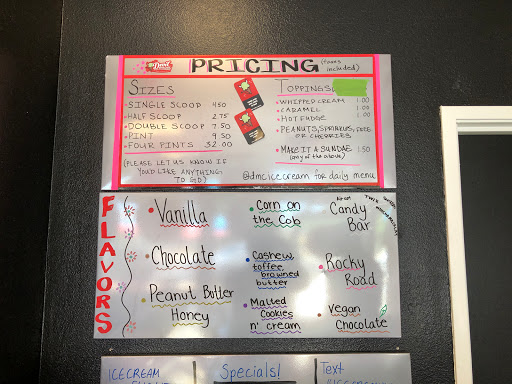 PRICING (taxes included)
SIZES
SINGLE SCOOP 4.50
HALF SCOOP 2.75
DOUBLE SCOOP 7.50
PINT 9.50
FOUR PINTS 32.00
(PLEASE LET US KNOW IF
YOU'D LIKE ANYTHING
TO GO)
TOPPINGS
WHIPPED CREAM 1.00
CARAMEL 1.00
HOT FUDGE 1.00
PEANUTS, SPRINKLES,
OR CHERRIES
MAKE IT A SUNDAE 1.50
(any of the above)
@dmcicecream for daily menu
FLAVORS
Vanilla
Chocolate
Peanut Butter
Honey
Corn on
the Cob
Cashew
toffee
browned
butter
Malted
Cookies
n' cream
Candy
Bar
Rocky
Road
Vegan
Chocolate
ICECREAM
Specials!
Text